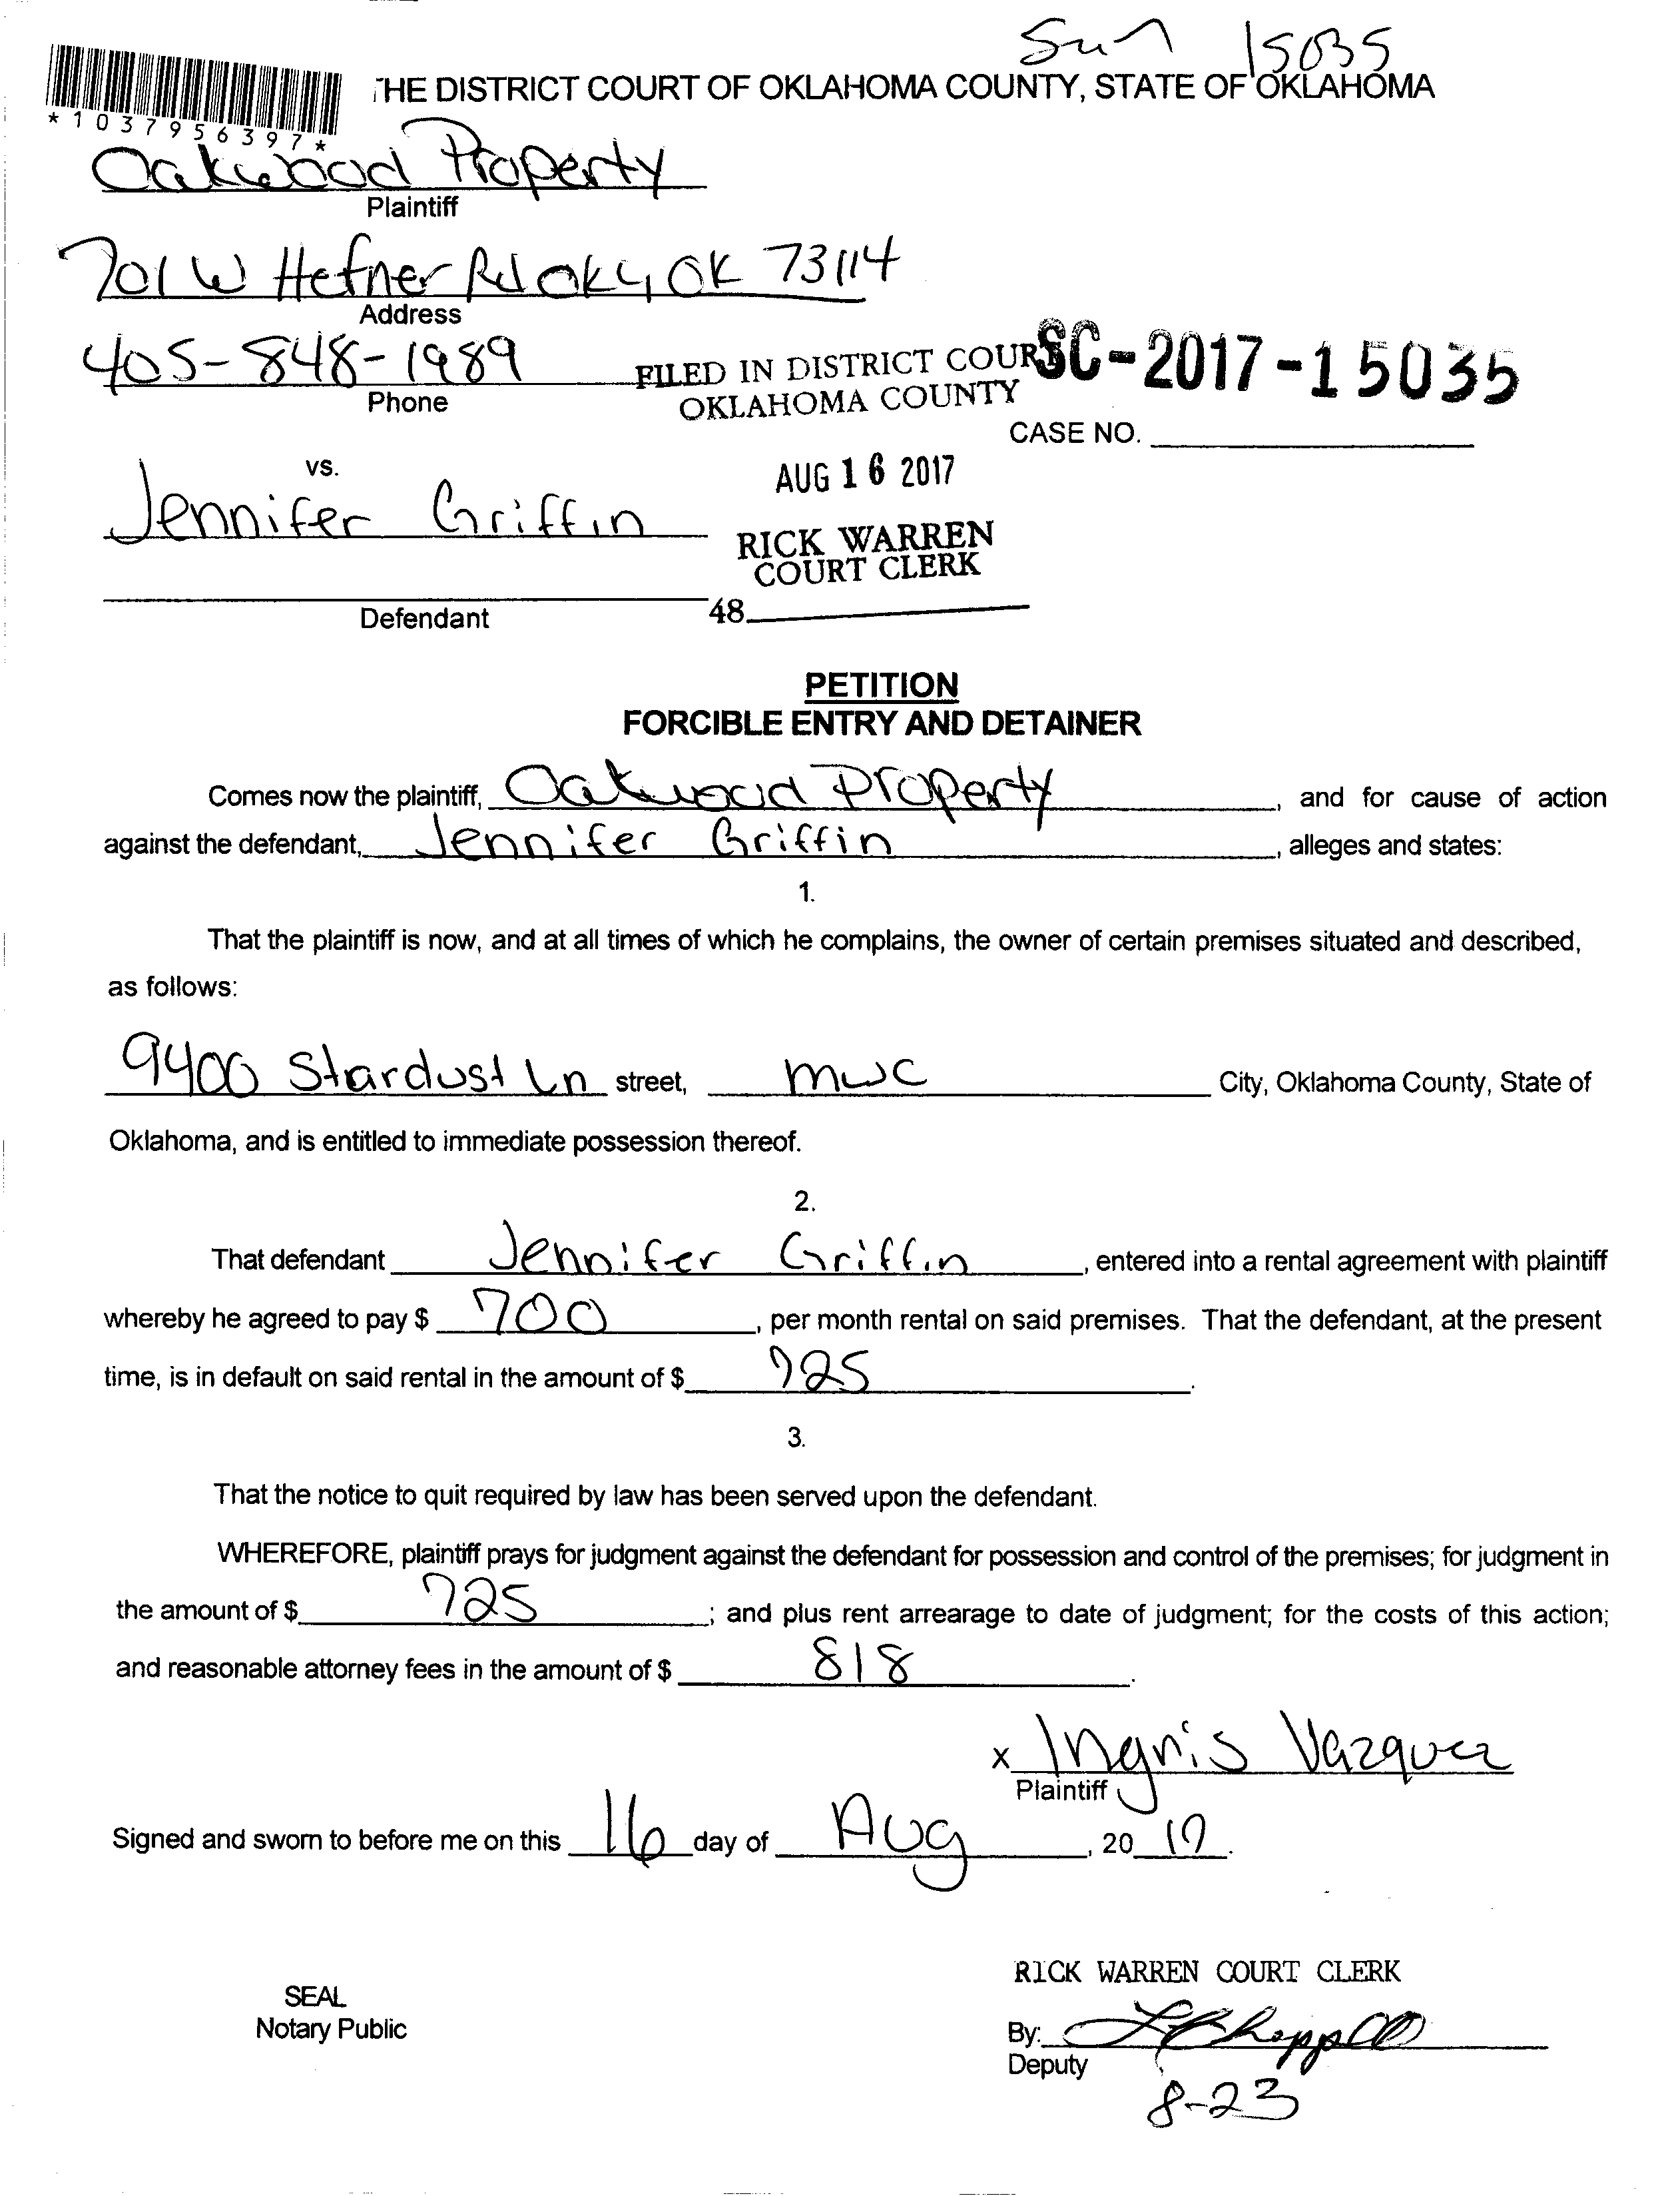 15035
THE DISTRICT COURT OF OKLAHOMA COUNTY, STATE OF OKLAHOMA
*1037956397*
Oakwood Property
Plaintiff
701 W Hefner Rd OKC, OK 73114
Address
405-848-1989
Phone
FILED IN DISTRICT COURT
OKLAHOMA COUNTY
SC-2017-15035
CASE NO.
vs.
AUG 16 2017
Jennifer Griffin
RICK WARREN
COURT CLERK
Defendant
48
PETITION
FORCIBLE ENTRY AND DETAINER
Comes now the plaintiff, Oakwood Property, and for cause of action
against the defendant, Jennifer Griffin, alleges and states:
1.
That the plaintiff is now, and at all times of which he complains, the owner of certain premises situated and described,
as follows:
9400 Stardust Ln street, mwc City, Oklahoma County, State of
Oklahoma, and is entitled to immediate possession thereof.
2.
That defendant Jennifer Griffin, entered into a rental agreement with plaintiff
whereby he agreed to pay $ 700, per month rental on said premises. That the defendant, at the present
time, is in default on said rental in the amount of $ 725.
3.
That the notice to quit required by law has been served upon the defendant.
WHEREFORE, plaintiff prays for judgment against the defendant for possession and control of the premises; for judgment in
the amount of $ 725; and plus rent arrearage to date of judgment; for the costs of this action;
and reasonable attorney fees in the amount of $ 818.
x Ingris Vazquez
Plaintiff
Signed and sworn to before me on this 16 day of Aug, 2017.
RICK WARREN COURT CLERK
SEAL
Notary Public
By:
Deputy
8-23